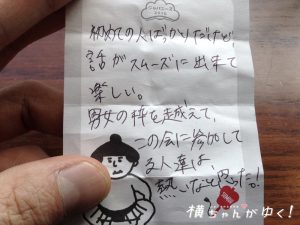 初めての人ばっかりだけど、
話がスムーズに出来て
楽しい。
男女の枠を越えて、
この会に参加して
る人達は、
熱いなと思った!
横ちゃんがゆく!